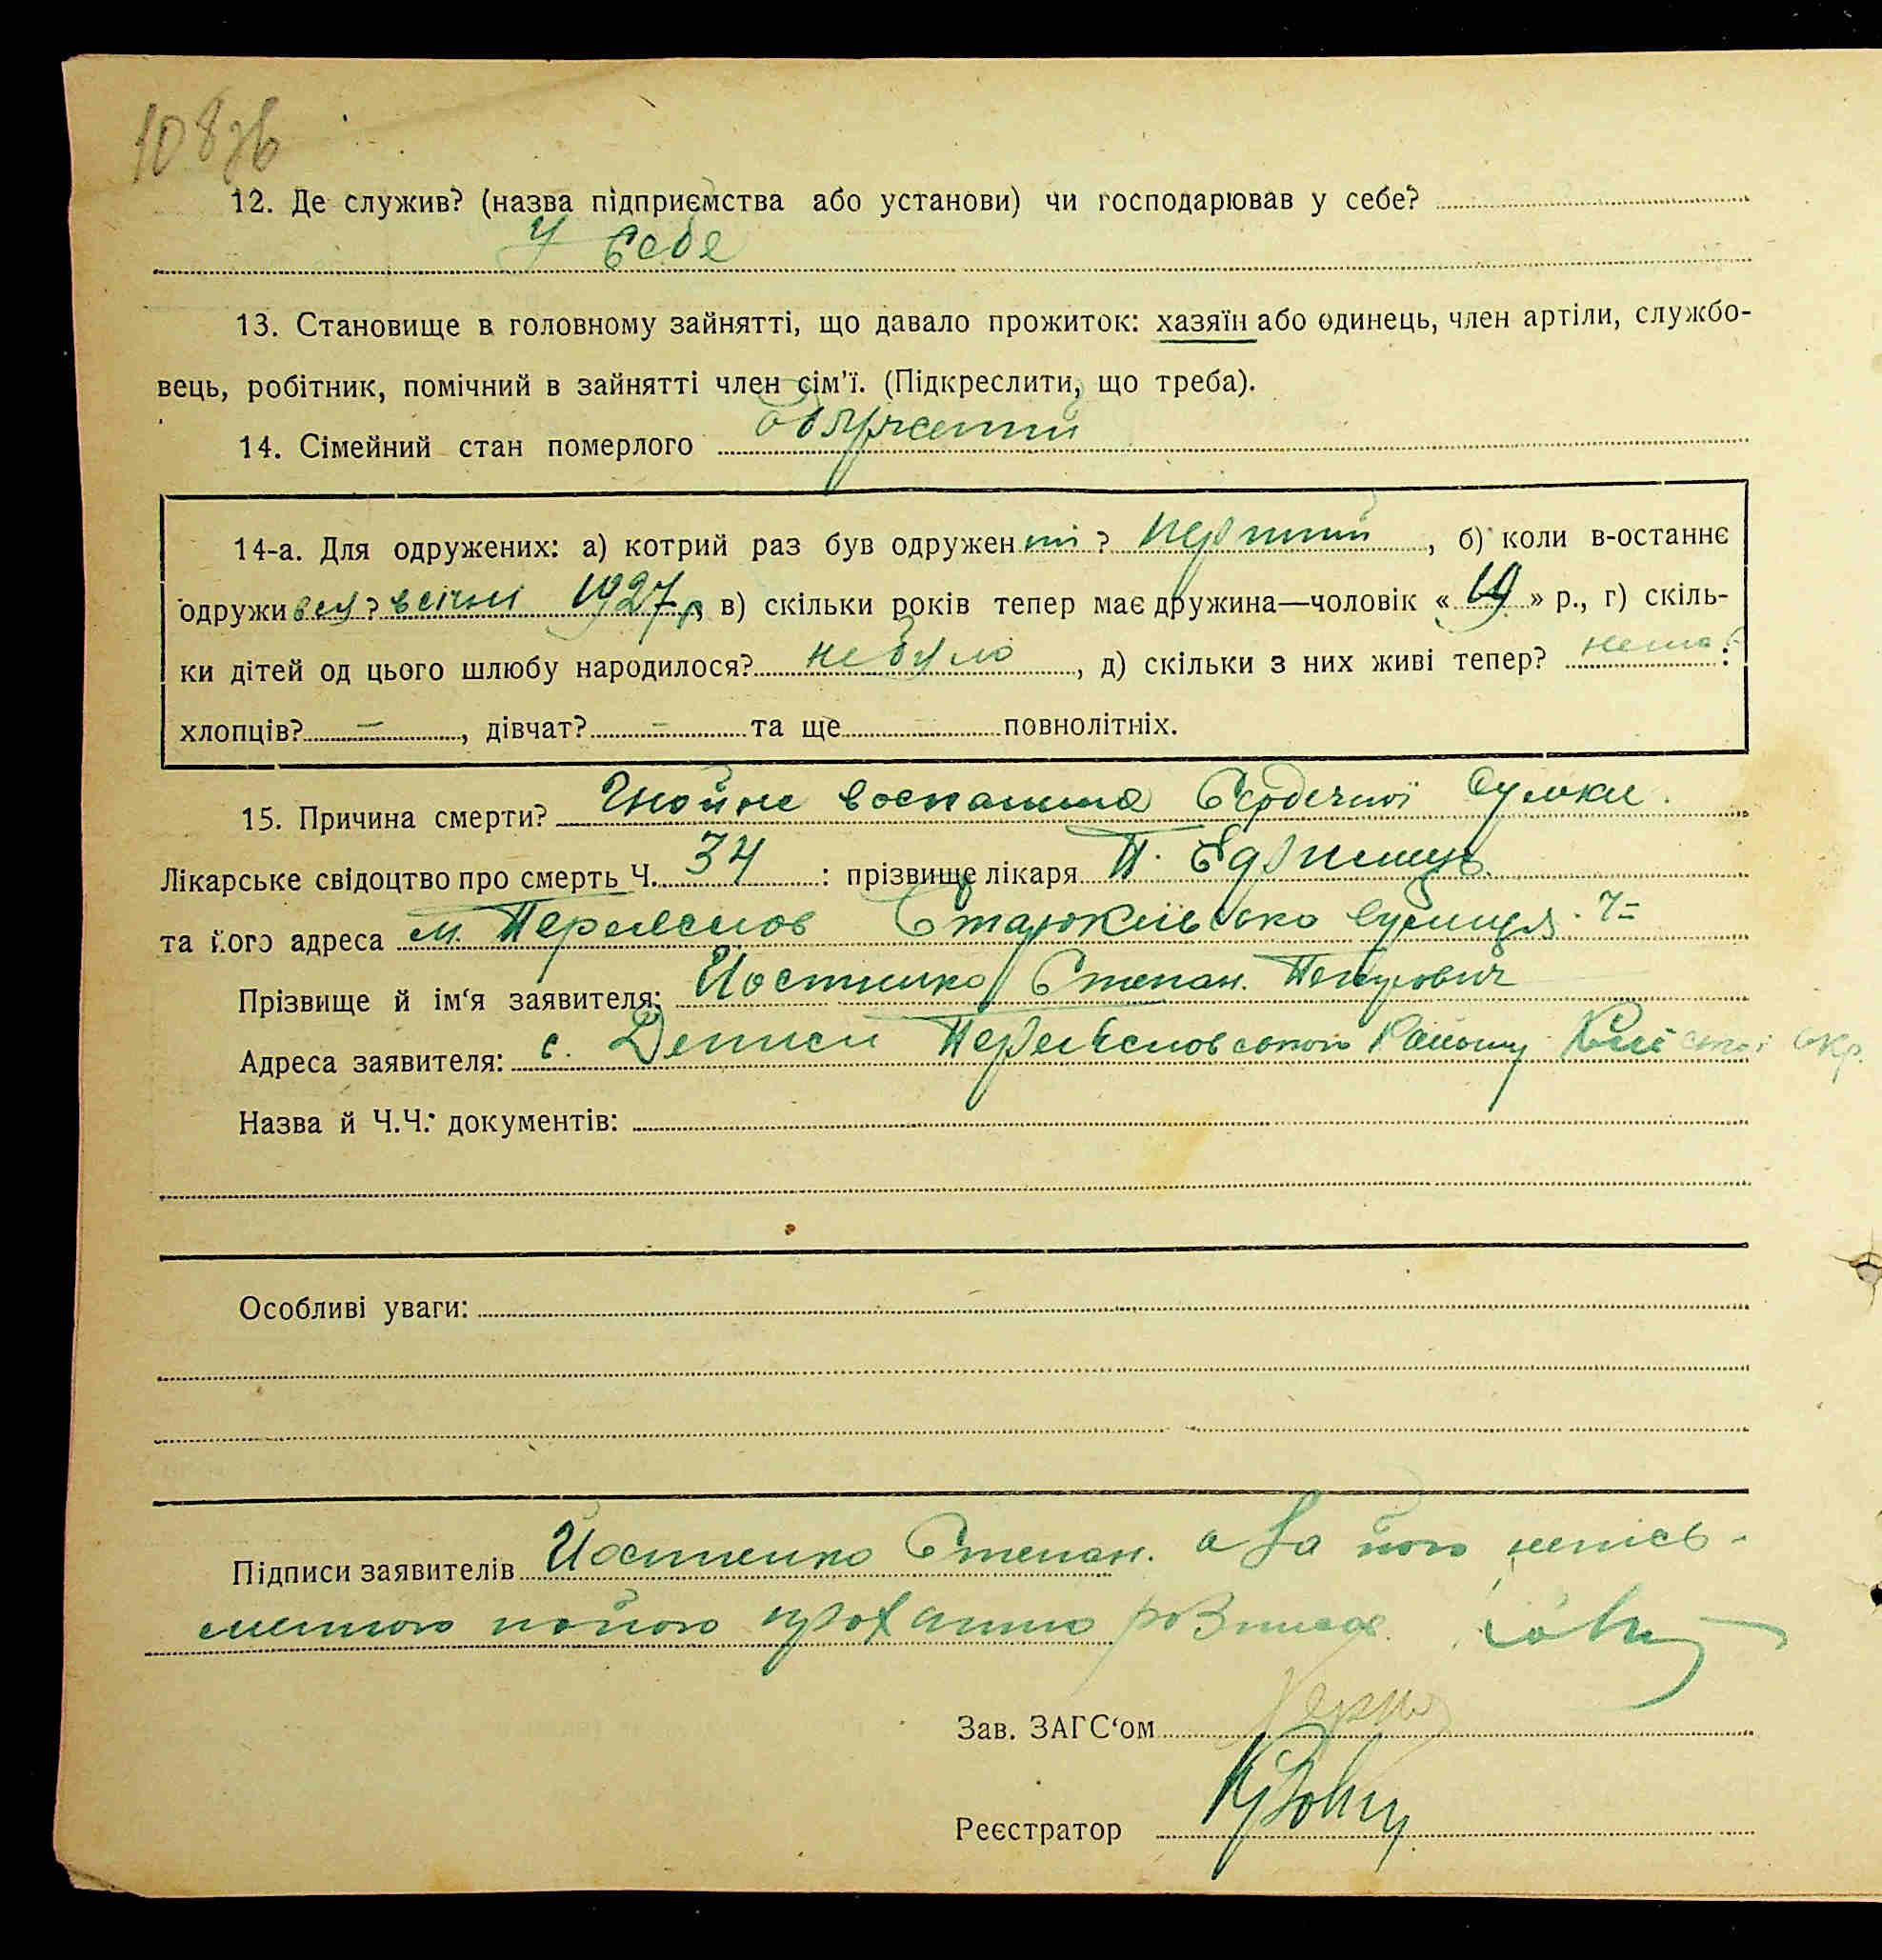 12. Де служив? (назва підприємства або установи) чи господарював у себе?
у себе
13. Становище в головному зайнятті, що давало прожиток: хазяїн або одинець, член артіли, службо-
вець, робітник, помічний в зайнятті член сім'ї. (Підкреслити, що треба).
14. Сімейний стан померлого одружений
14-а. Для одружених: а) котрий раз був одружен ий? перший, б) коли в-останнє
одружи вся? в січні 1927 р, в) скільки років тепер має дружина—чоловік « 19 » р., г) скіль-
ки дітей од цього шлюбу народилося? не було, д) скільки з них живі тепер? нема :
хлопців? –, дівчат? – та ще повнолітніх.
15. Причина смерти? Гнойне воспаління Сердечної Сумки.
Лікарське свідоцтво про смерть Ч. 34 : прізвище лікаря П.
та його адреса м. Переяслов Старокиївська вулиця. 7
Прізвище й ім'я заявителя: Степан. Петрович
Адреса заявителя: с. Дениси Переяславського Району Київської окр.
Назва й Ч.Ч. документів:
Особливі уваги:
Підписи заявителів Степан. а за його непись-
менного по його проханню розписався.
Зав. ЗАГС'ом
Реєстратор